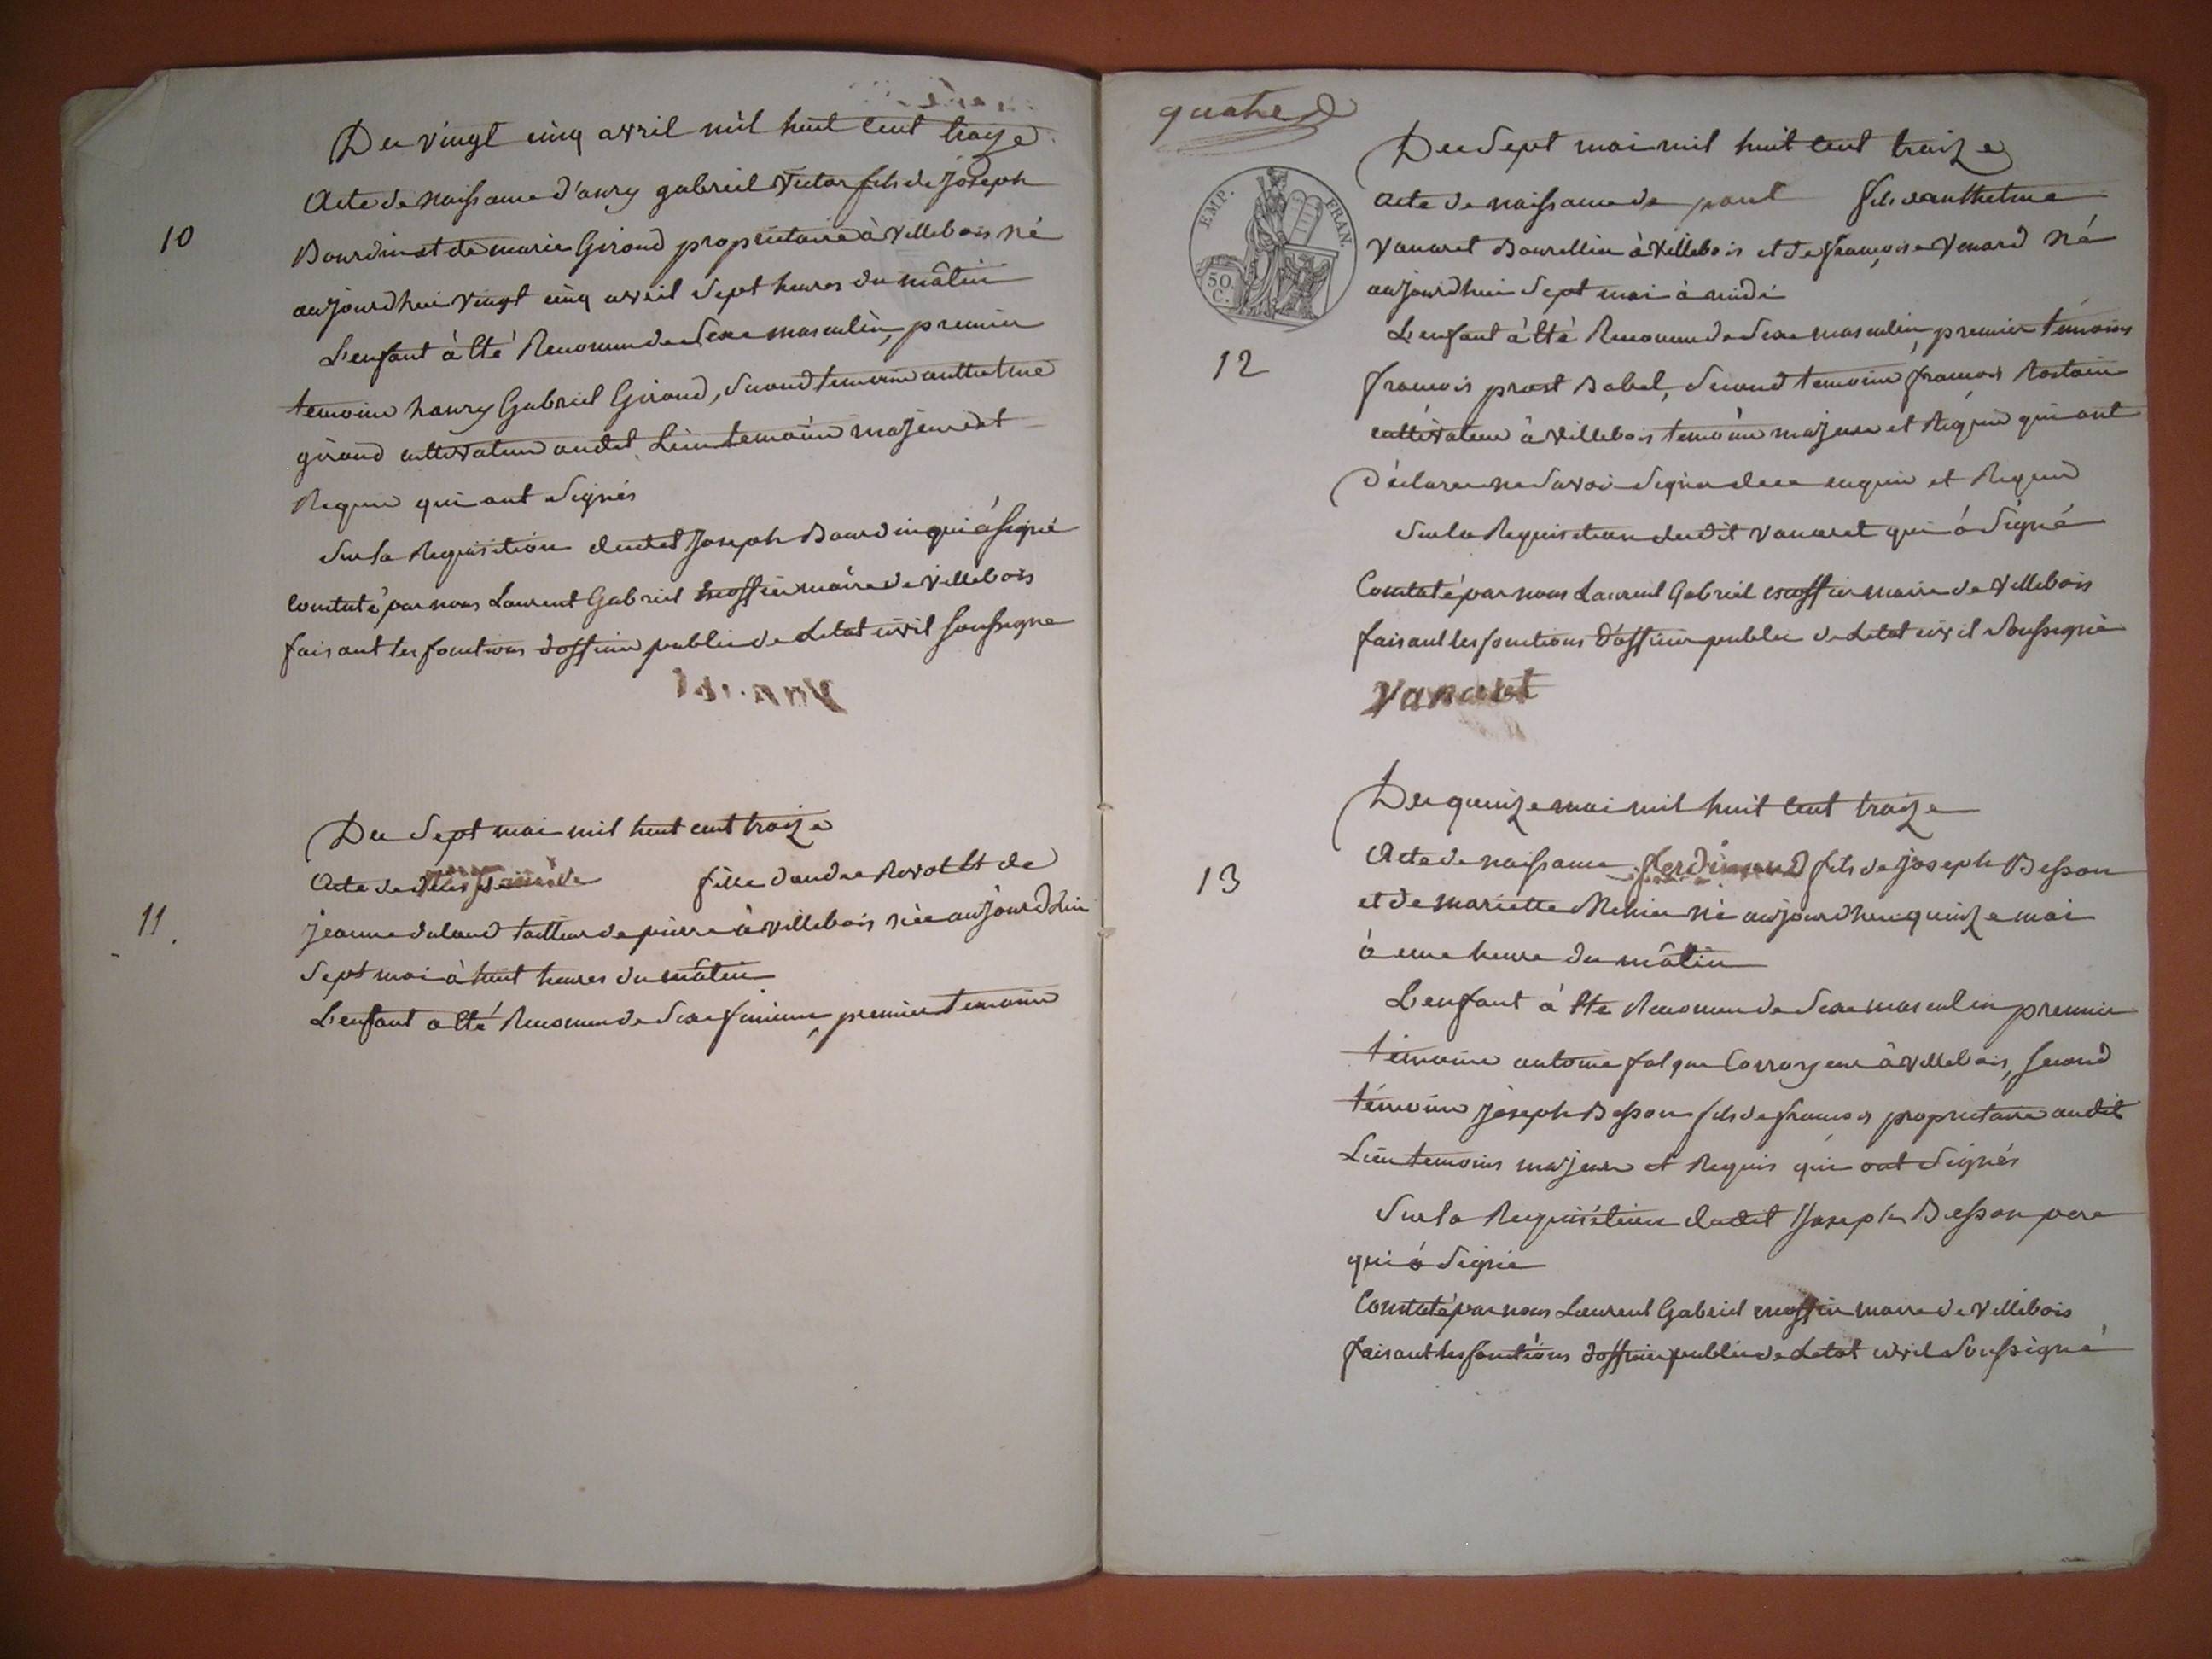 Du vingt cinq avril mil huit cent traize
10
Acte de naissance d'anry gabriel victor fils de Joseph
Bourdin et de marie Girond proprietaire à villebois né
aujourdhui vingt cinq avril sept heures du mâtin
L'enfant à été Reconnu de Sexe masculin, premier
temoin hanry Gabriel Girond, Second temoin anthelme
girond cultivateur audit Lieu temoin majeur et
Requis qui ont Signés
Sur la Requisition dudit Joseph Bourdin qui à signé
Constaté par nous Laurent Gabriel escoffier maire de villebois
faisant les fonctions d'officier public de Letat civil soussigne
Du Sept mai mil huit cent traize
11.
Acte de fille dandre Revol et de
jeanne duland tailleur de pierre à villebois née aujourdhui
Sept mai à huit heures du mâtin
L'enfant a été Reconnu de Sexe feminin, premier temoin
quatre
EMP. FRAN.
50 C.
Du Sept mai mil huit cent traize
Acte de naissance de paul fils danthelme
Vanaret Bourellier à villebois et de françoise Venard né
aujourdhui Sept mai à midi
12
L'enfant à été Reconnu de Sexe masculin, premier témoins
françois prost Babel, Second temoin françois Rostain
cultivateur à villebois temoin majeur et Requis qui ont
Déclarer ne Savoir Signer de ce enquis et Requis
Sur la Requisition dudit vanaret qui à Signé
Constaté par nous Laurent Gabriel escoffier maire de villebois
faisant les fonctions d'officier public de Letat civil Soussigné
Vanaret
Du quinze mai mil huit cent traize
13
Acte de naissance ferdinand fils de joseph Besson
et de mariette né aujourdhui quinze mai
à une heure du mâtin
L'enfant à été Reconnu de Sexe masculin premier
témoin antoine falque Corroyeur à villebois, Second
témoin joseph Besson fils de françois proprietaire audit
Lieu temoins majeur et Requis qui ont Signés
Sur la Requisition dudit Joseph Besson pere
qui à Signé
Constaté par nous Laurent Gabriel escoffier maire de villebois
faisant les fonctions d'officier public de Letat civil Soussigné